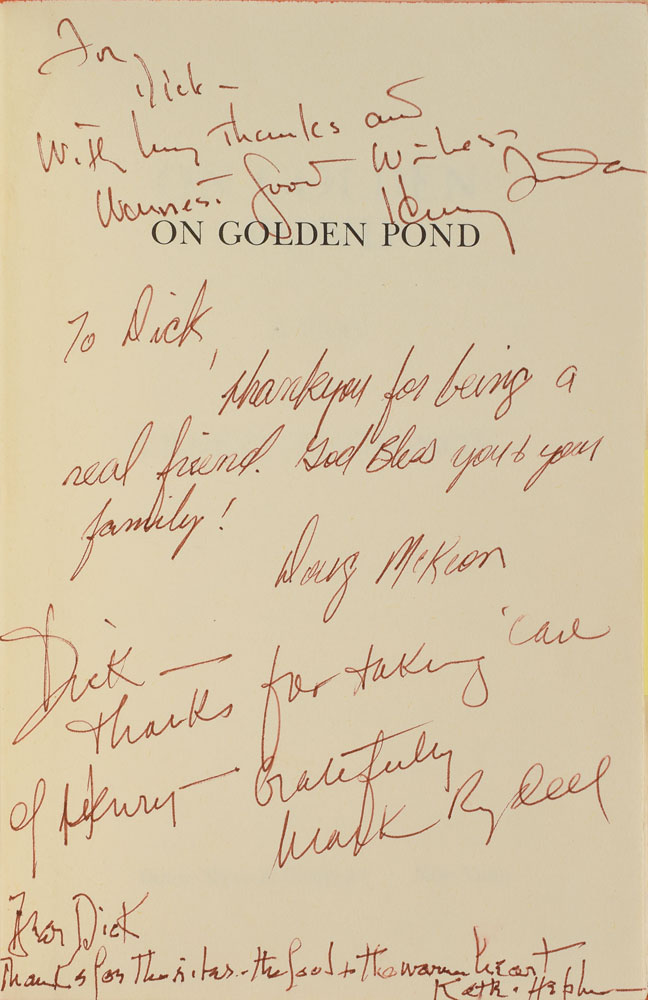 For
Dick –
With my thanks and
warmest good wishes –
Henry Fonda
ON GOLDEN POND
To Dick,
Thankyou for being a
real friend. God Bless you & your
family!
Doug McKeon
Dick —
Thanks for taking care
of Henry — Gratefully
Mark Rydell
Dear Dick
Thanks for the – the food & the warm heart
Kath. Hepburn